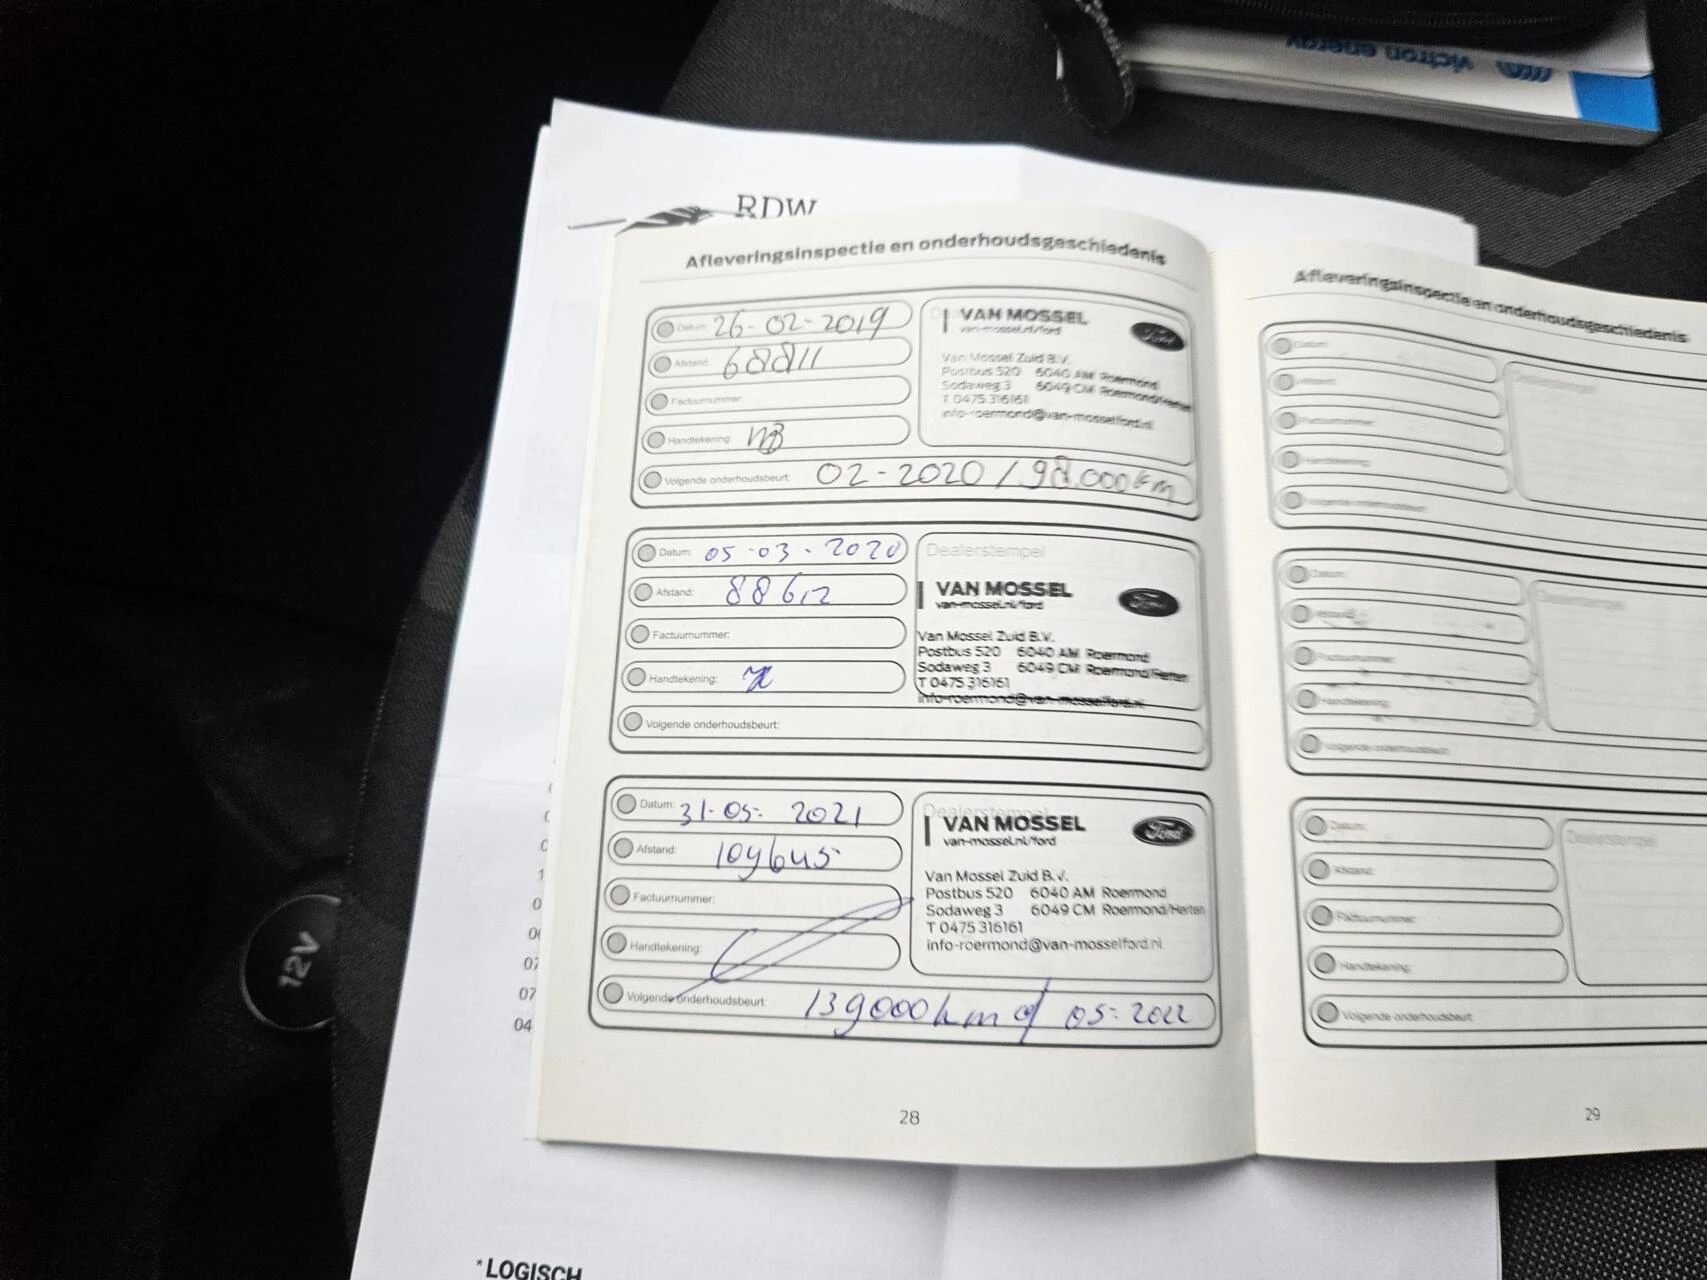 victron energy
RDW
Afleveringsinspectie en onderhoudsgeschiedenis
Datum: 26-02-2019
Afstand: 68811
Factuurnummer:
Handtekening:
Volgende onderhoudsbeurt: 02-2020 / 98.000km
VAN MOSSEL
van-mossel.nl/ford
Ford
Van Mossel Zuid B.V.
Postbus 520 6040 AM Roermond
Sodaweg 3 6049 CM Roermond/Herten
T 0475 316161
info-roermond@van-mosselford.nl
Datum: 05-03-2020
Afstand: 88612
Factuurnummer:
Handtekening:
Volgende onderhoudsbeurt:
Dealerstempel
VAN MOSSEL
van-mossel.nl/ford
Ford
Van Mossel Zuid B.V.
Postbus 520 6040 AM Roermond
Sodaweg 3 6049 CM Roermond/Herten
T 0475 316161
info-roermond@van-mosselford.nl
Datum: 31-05-2021
Afstand:
Factuurnummer:
Handtekening:
Volgende onderhoudsbeurt: 139000km of 05-2022
Dealerstempel
VAN MOSSEL
van-mossel.nl/ford
Ford
Van Mossel Zuid B.V.
Postbus 520 6040 AM Roermond
Sodaweg 3 6049 CM Roermond/Herten
T 0475 316161
info-roermond@van-mosselford.nl
28
Afleveringsinspectie en onderhoudsgeschiedenis
Datum:
Afstand:
Factuurnummer:
Handtekening:
Volgende onderhoudsbeurt:
Dealerstempel
Datum:
Afstand:
Factuurnummer:
Handtekening:
Volgende onderhoudsbeurt:
Dealerstempel
Datum:
Afstand:
Factuurnummer:
Handtekening:
Volgende onderhoudsbeurt:
Dealerstempel
29
12V
07
07
04
*LOGISCH